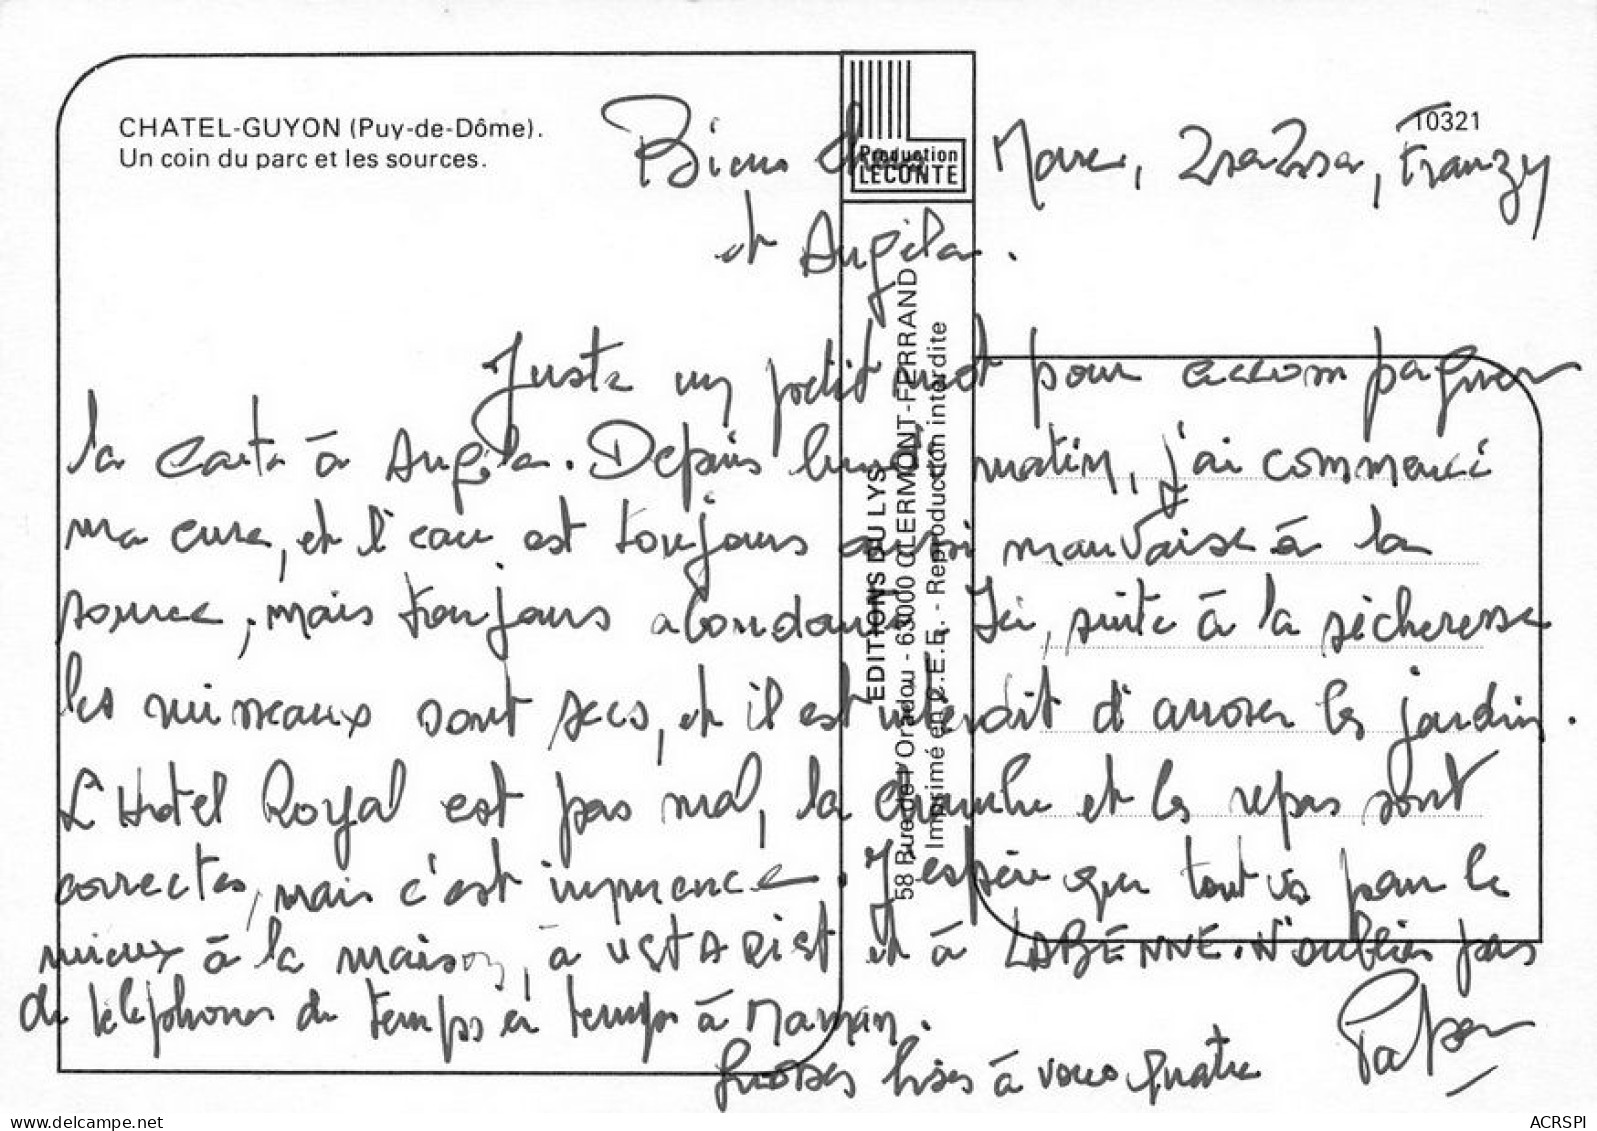 CHATEL-GUYON (Puy-de-Dôme).
Un coin du parc et les sources.
Production
LECONTE
10321
EDITIONS DU LYS
58 Rue de l'Oradou - 63000 CLERMONT-FERRAND
Imprimé en C.E.E. - Reproduction interdite
Bien chers Marc, ZsaZsa, Franzy
et Angéla.
Juste un petit mot pour accompagner
la carte à Angéla. Depuis lundi matin, j'ai commencé
ma cure, et l'eau est toujours aussi mauvaise à la
source, mais toujours abondante. Ici, suite à la sécheresse
les ruisseaux sont secs, et il est interdit d'arroser les jardins.
L'Hotel Royal est pas mal, la chambre et les repas sont
correctes, mais c'est . J'espère que tout va pour le
mieux à la maison, à et à LABENNE. N'oubliez pas
de téléphoner de temps en temps à Maman.
Grosses bises à vous quatre